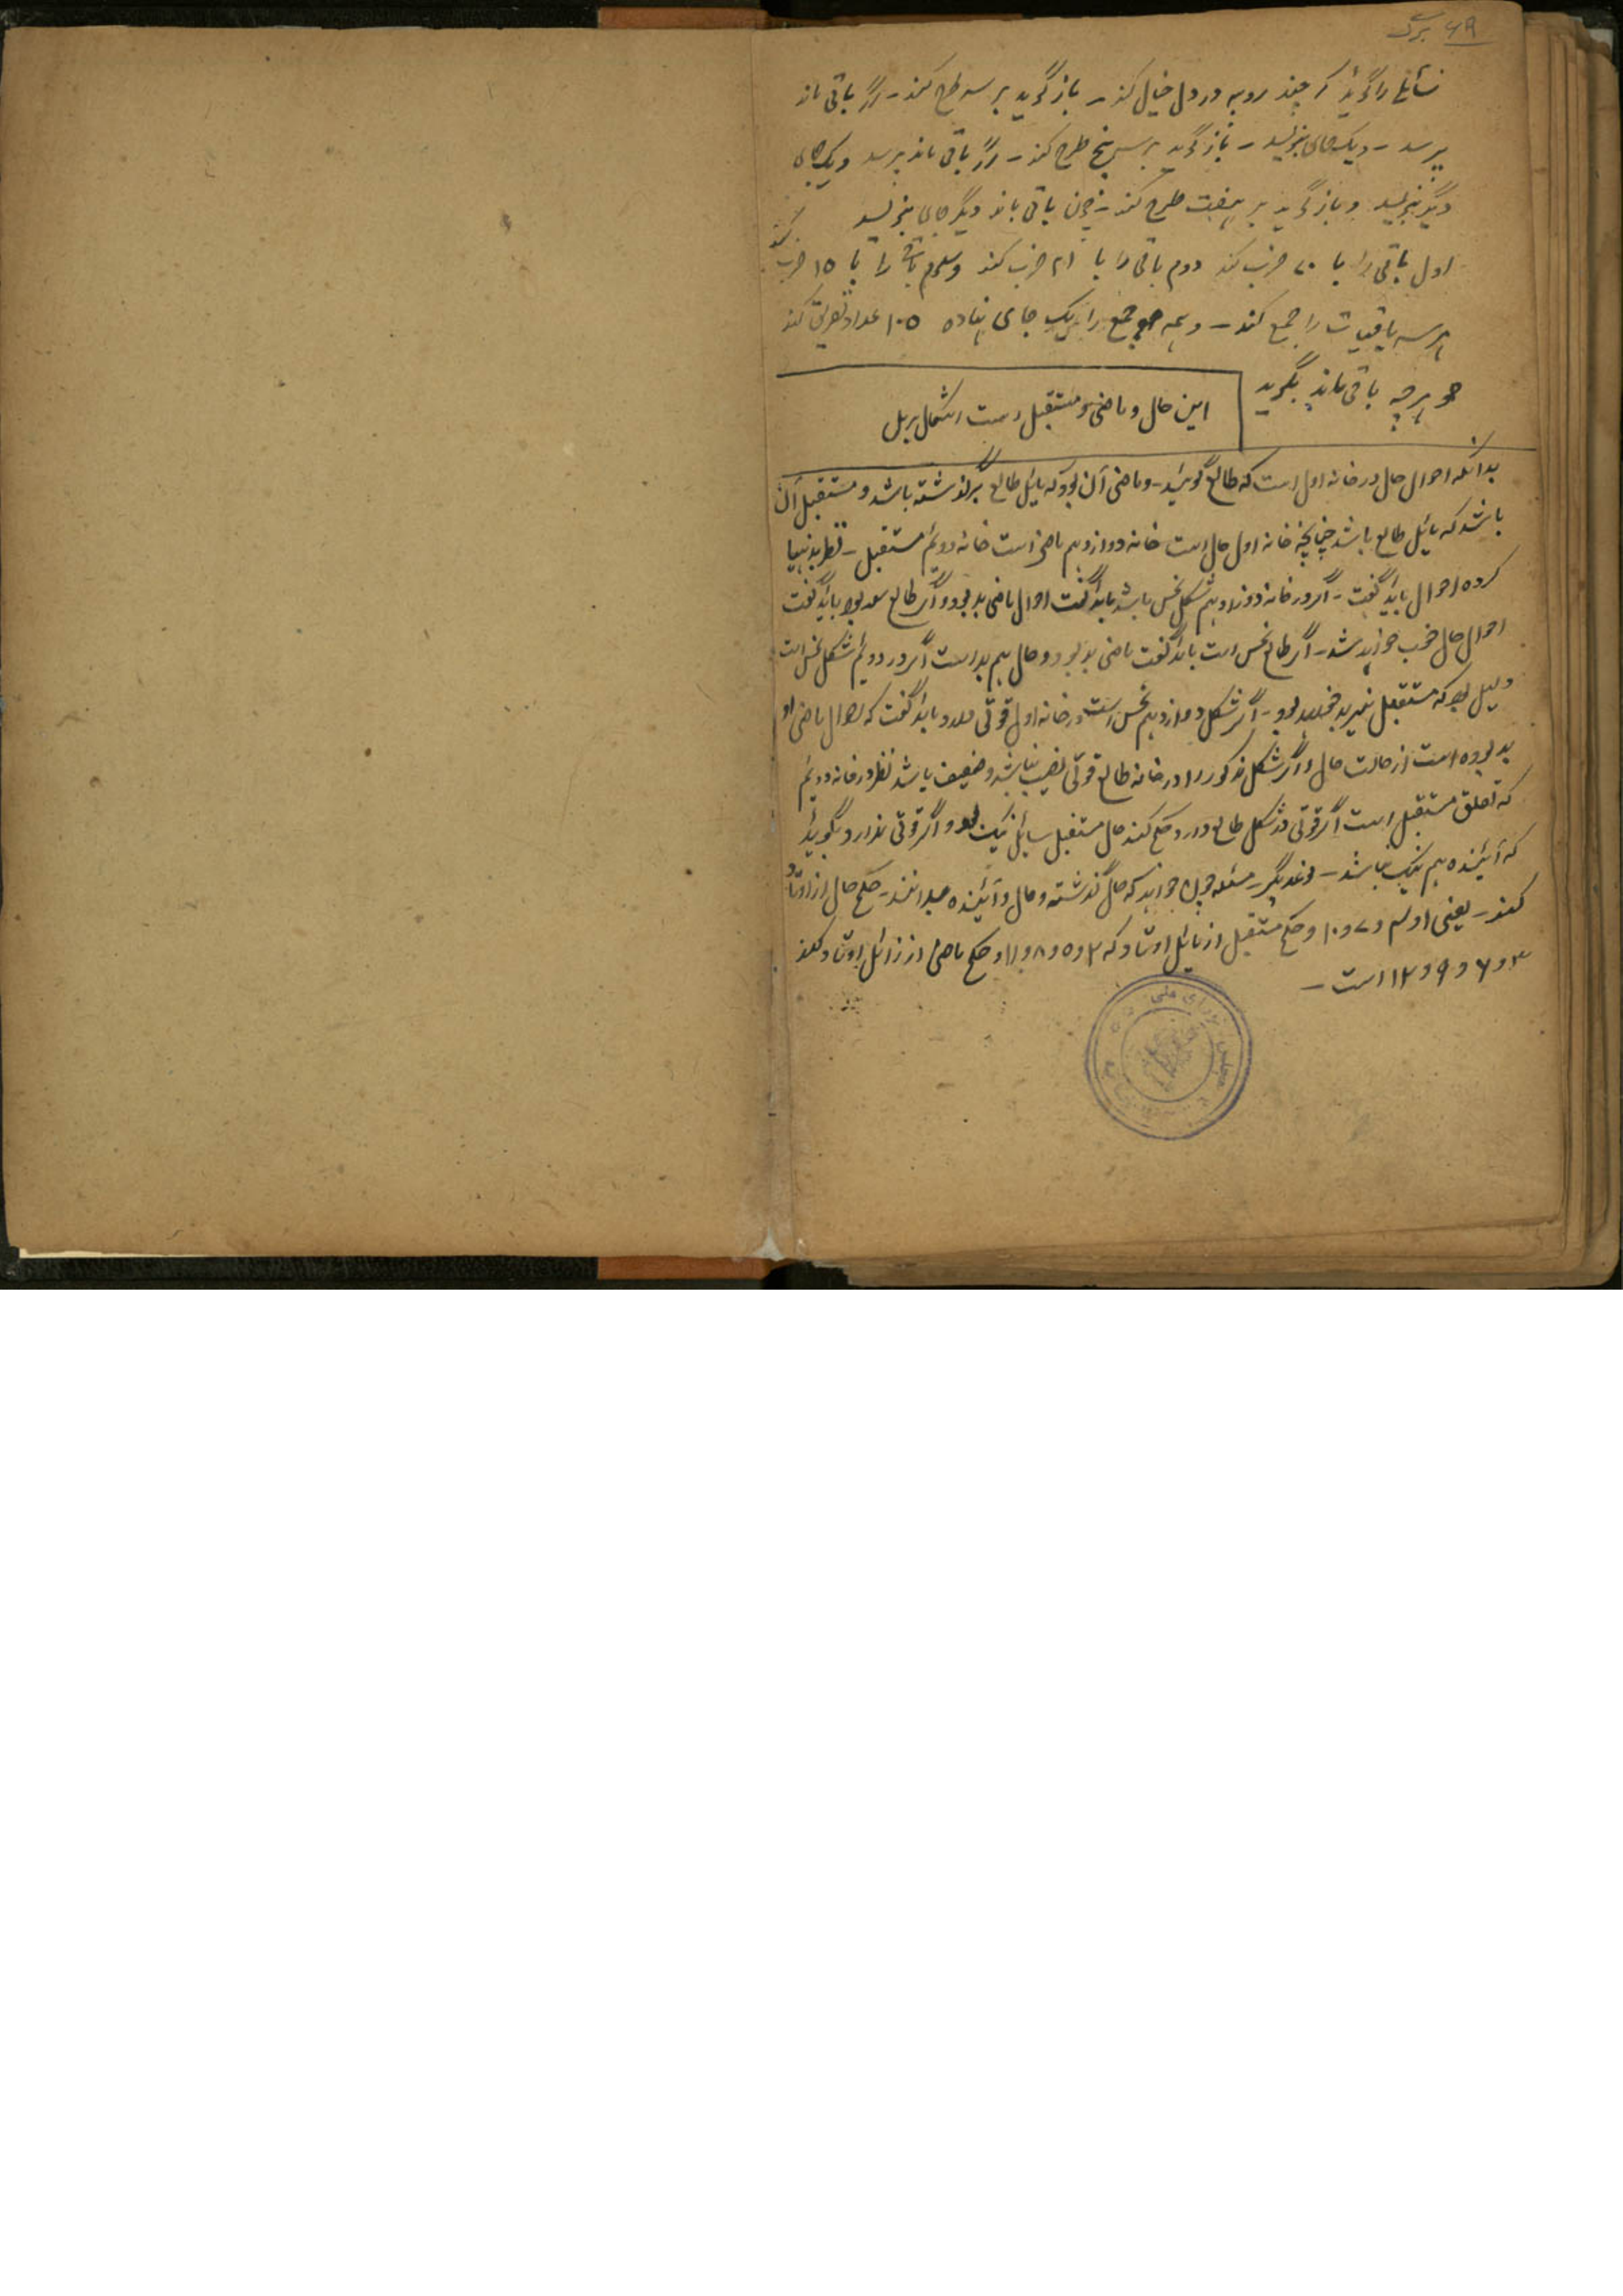 ۶۹ برگ
را گوید که چند روپیه در دل خیال کند - باز گوید بر سه طرح کند - اگر باقی ماند
پرسد - و یک جای بنویسد - باز گوید بر پنج طرح کند - اگر باقی ماند پرسد و یک جای
دیگر بنویسد و باز گوید بر هفت طرح کند - چون باقی ماند دیگر جای بنویسد
اول باقی را با ۷۰ ضرب کند دوم باقی را با ۲۱ ضرب کند و سوم باقی را با ۱۵ ضرب کند
هر سه باقیات را جمع کند - و همه جمع را یک جای نهاده ۱۰۵ اعداد تفریق کند
هر چه باقی ماند بگوید
این حال و ماضی و مستقبل است اشکال بریل
بدانکه احوال حال در خانه اول است که طالع گویند - و ماضی آن بود که مائل طالع برگذشته باشد و مستقبل آن
باشد که مائل طالع باشد چنانچه خانه اول حال است خانه دوازدهم ماضی است خانه دوئم مستقبل - نظر بدینها
کرده احوال باید گفت - اگر در خانه دوازدهم شکل نحس باشد باید گفت احوال ماضی بد بود و اگر طالع سعد بود باید گفت
احوال حال خوب خواهد شد - اگر طالع نحس است باید گفت ماضی بد بود و حال هم بد است اگر در دوئم شکل نحس است
دلیل بود که مستقبل نیز بد خواهد بود - اگر شکل دوازدهم نحس است و در خانه اول قوتی دارد باید گفت که احوال ماضی او
بد بوده است از حالت حال و اگر شکل مذکور را در خانه طالع قوتی نصیب نباشد و ضعیف باشد نظر در خانه دوئم
که تعلق مستقبل است اگر قوتی در شکل طالع دارد حکم کند حال مستقبل سائل نیک بود و اگر قوتی ندارد بگوید
که آئینده هم نیک نباشد - مسئله چون خواهد که حال گذشته و حال و آئینده بدانند - حکم حال از اوتاد
کنند - یعنی ۱ و ۴ و ۷ و ۱۰ و حکم مستقبل از مائل اوتاد که ۲ و ۵ و ۸ و ۱۱ و حکم ماضی از زائل اوتاد کنند
۳ و ۶ و ۹ و ۱۲ است -
مجلس شورای ملی